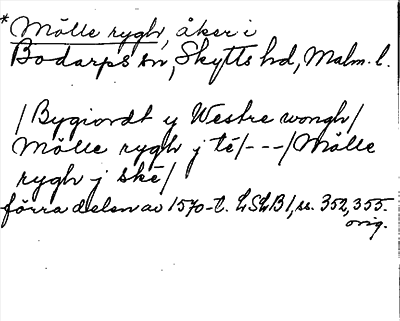 * Mölle rygh, åker i
Bodarps sn, Skytts hd, Malm. l.
/Bygiordt y Westre wongh/
Mölle rygh j té/---/Mölle
rygh j ské/
förra delen av 1570-t. LSLB 1, ss. 352, 355.
orig.